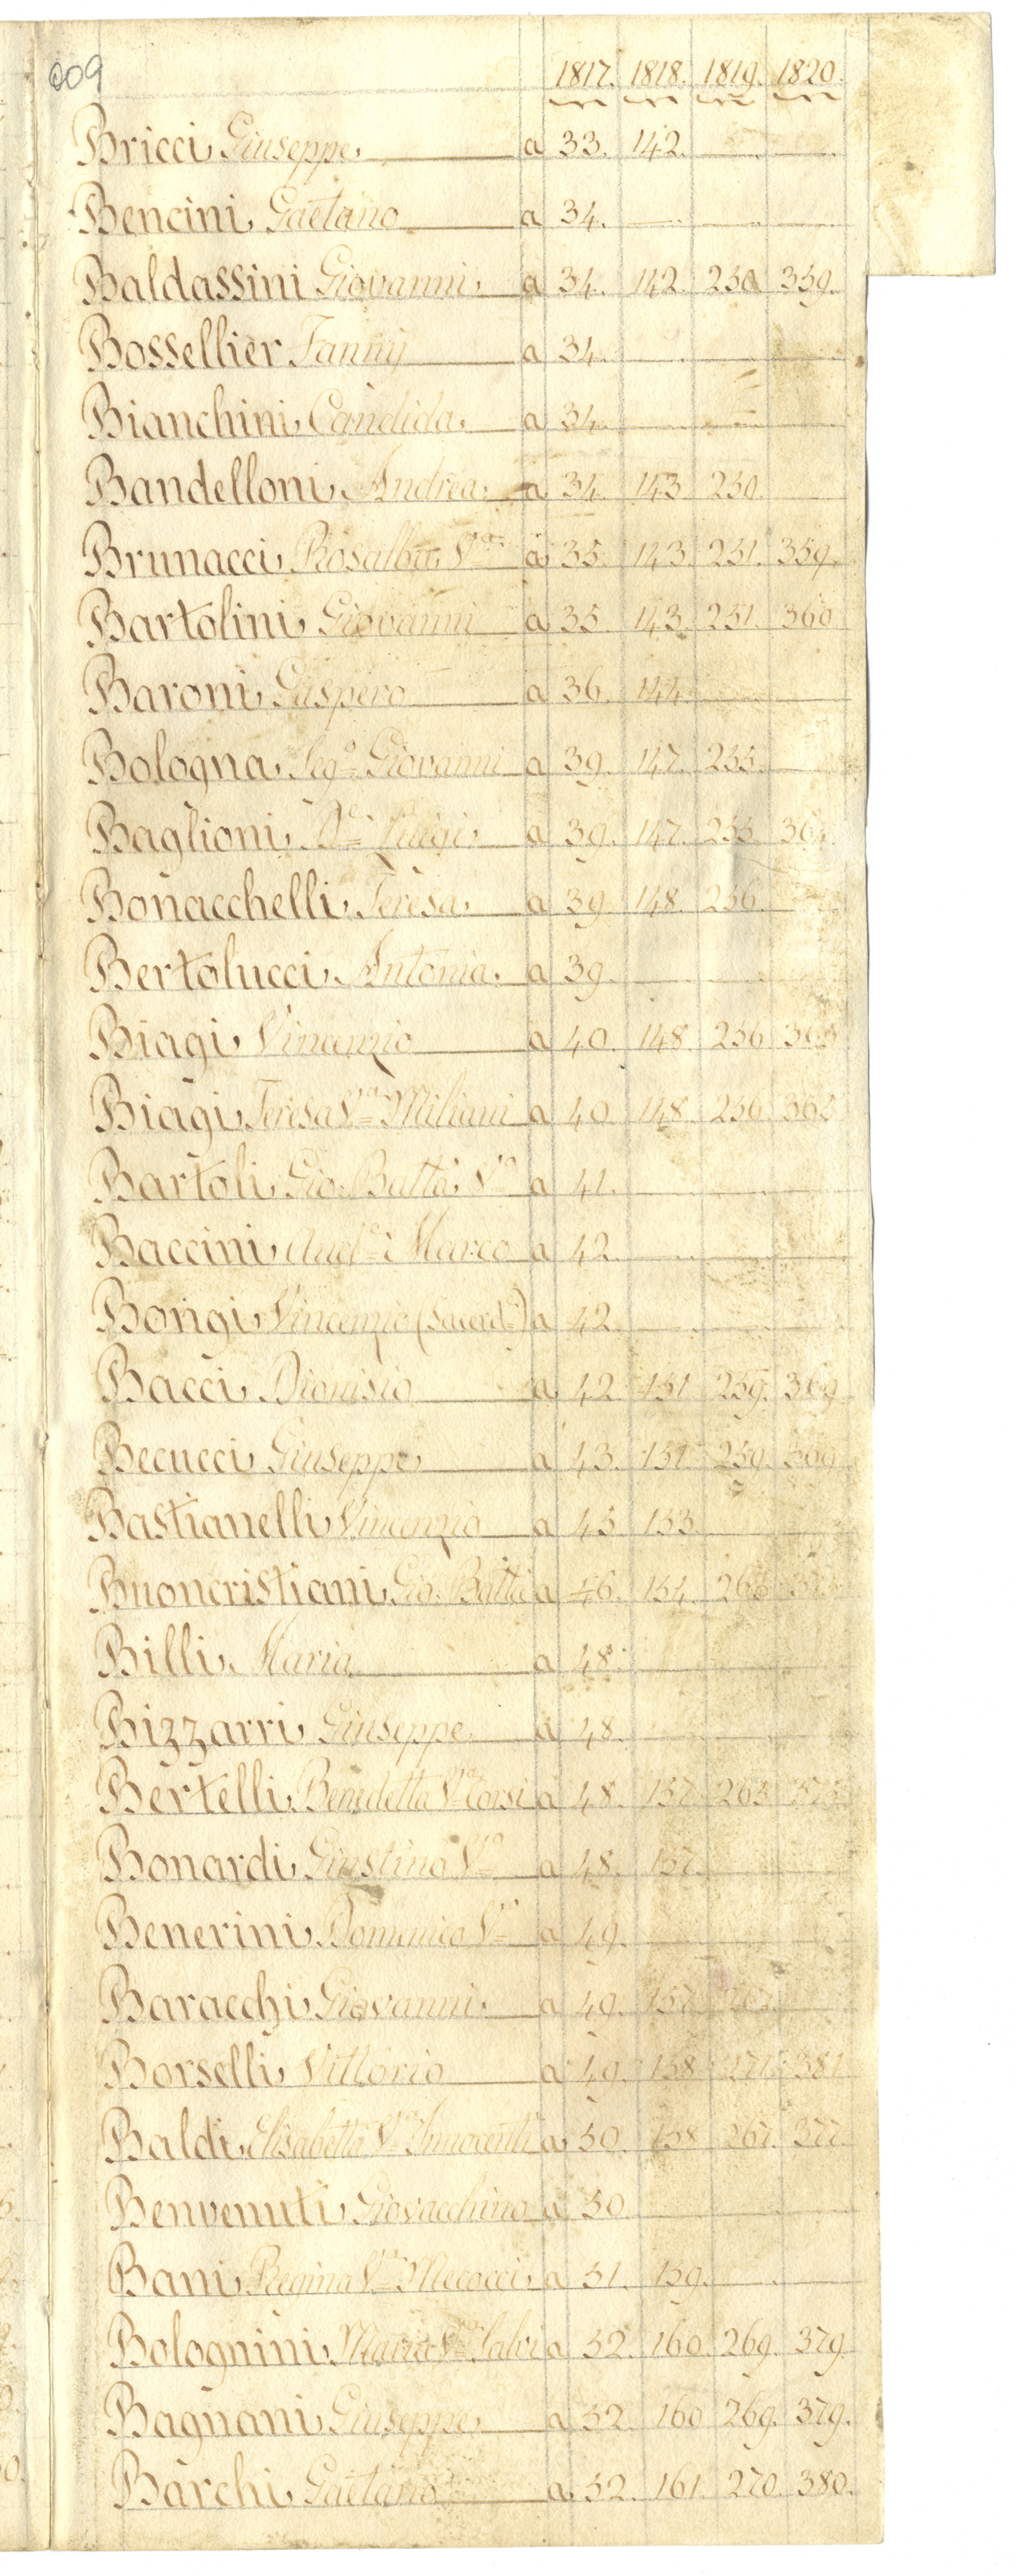 009
1817. 1818. 1819. 1820.
Bricci, Giuseppe, a 33. 142.
Bencini, Gaetano a 34.
Baldassini Giovanni, a 34. 142. 250 359.
Bossellier, Fanny a 34.
Bianchini, Candida, a 34.
Bandelloni, Andrea, a 34. 143 250.
Brunacci, Rosalba, Vᵃ a 35. 143. 251. 359.
Bartolini, Giovanni a 35 143. 251. 360
Baroni, Gaspero a 36. 144.
Bologna, Segº Giovanni a 39. 147. 255.
Baglioni, Luigi, a 39. 147. 255
Bonacchelli, Teresa, a 39 148. 256.
Bertolucci, Antonia, a 39.
Biagi, Vincenzio a 40. 148. 256.
Biagi, Teresa Vᵃ Miliani a 40. 148. 256.
Bartoli, Gio: Batta, a 41.
Baccini, Marco a 42.
Bongi, Vincenzio (Sacerdᵗᵉ) a 42.
Bacci, Dionisio a 42 151 259. 369
Becucci, Giuseppe, a 43. 151. 259. 369
Bastianelli, Vincenzio a 45 153.
Buoncristiani, Gio: Batta a 46. 154.
Billi, Maria a 48.
Bizzarri, Giuseppe a 48.
Bertelli, Benedetta Vᵃ Corsi a 48. 157. 265
Bonardi, Giustino a 48. 157.
Benerini, Domenico a 49.
Baracchi, Giovanni, a 49. 157.
Borselli, Vittorio a 49. 158. 271. 381
Baldi, Elisabetta Vᵃ Innocenti a 50. 158 267. 377.
Benvenuti, Giovacchino a 50
Bani, Regina Vᵃ Mecocci, a 51. 159.
Bolognini, Maria Vᵃ Salvi a 52. 160. 269. 379.
Bagnani, Giuseppe, a 52. 160 269. 379.
Barchi, Gaetano a 52. 161. 270. 380.